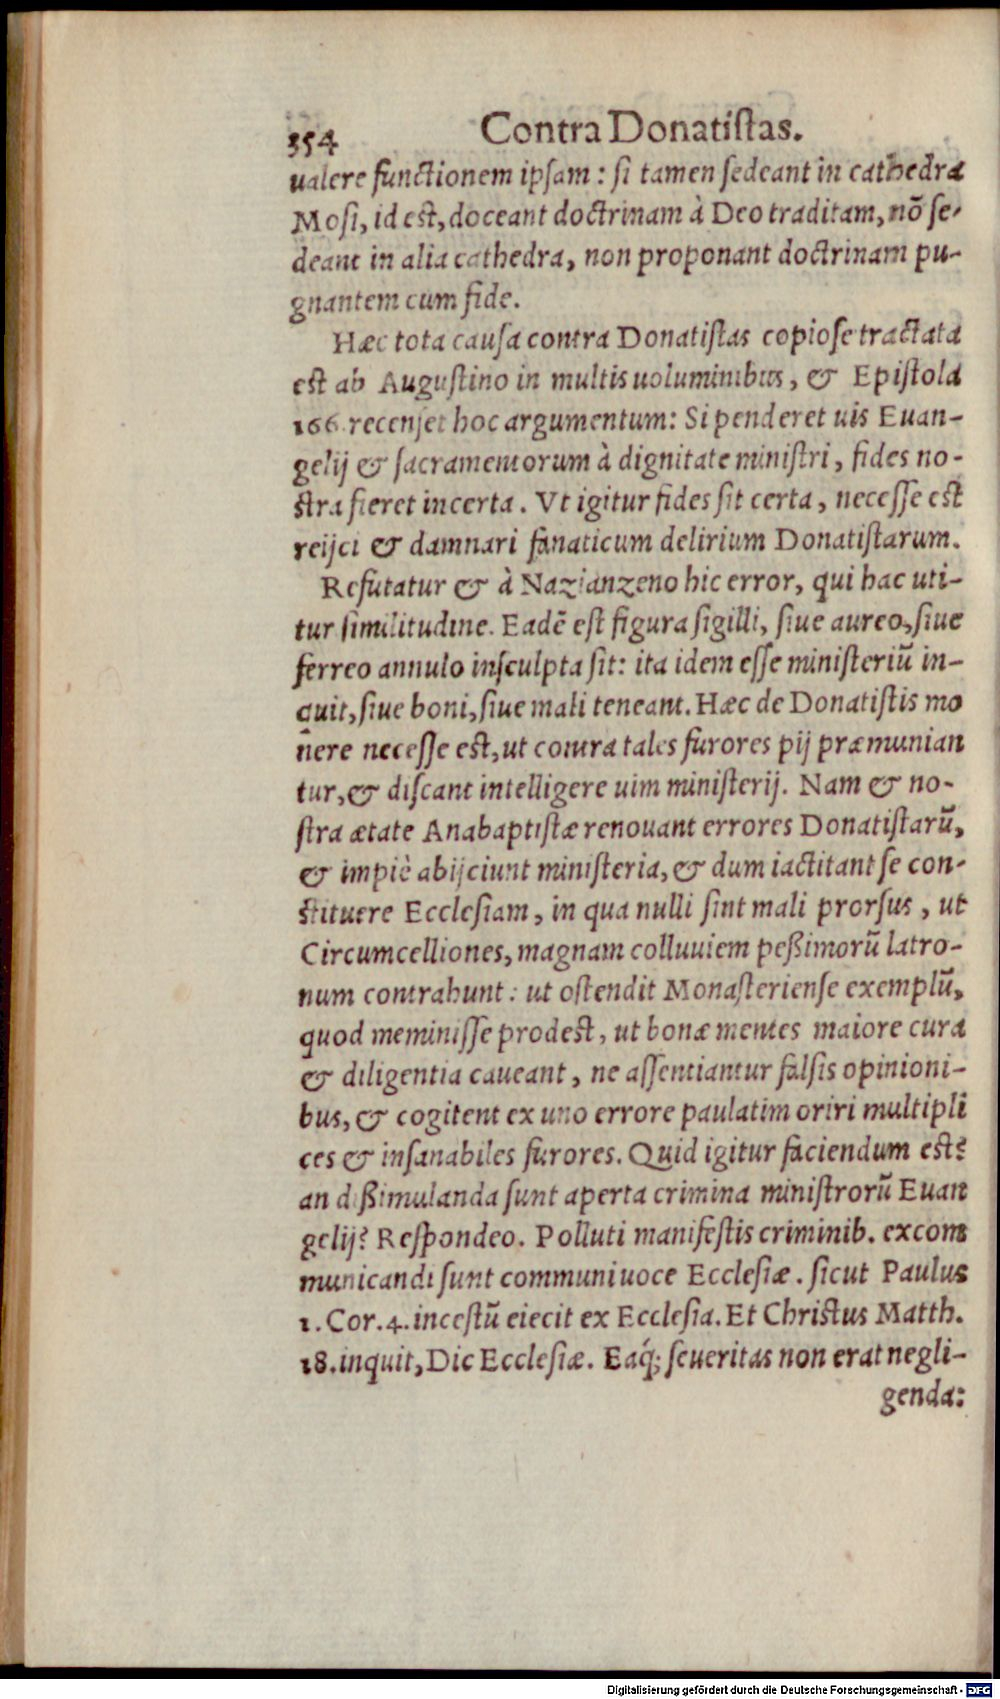 354 Contra Donatistas.
ualere functionem ipsam : si tamen sedeant in cathedra
Mosi, id est, doceant doctrinam à Deo traditam, nō se-
deant in alia cathedra, non proponant doctrinam pu-
gnantem cum fide.
Hæc tota causa contra Donatistas copiose tractata
est ab Augustino in multis uoluminibus, & Epistola
166. recenset hoc argumentum: Si penderet uis Euan-
gelij & sacramentorum à dignitate ministri, fides no-
stra fieret incerta. Vt igitur fides sit certa, necesse est
reijci & damnari fanaticum delirium Donatistarum.
Refutatur & à Nazianzeno hic error, qui hac uti-
tur similitudine. Eadē est figura sigilli, siue aureo, siue
ferreo annulo insculpta sit: ita idem esse ministeriū in-
quit, siue boni, siue mali teneant. Hæc de Donatistis mo
nere necesse est, ut contra tales furores pij præmunian
tur, & discant intelligere uim ministerij. Nam & no-
stra ætate Anabaptistæ renouant errores Donatistarū,
& impiè abijciunt ministeria, & dum iactitant se con-
stituere Ecclesiam, in qua nulli sint mali prorsus, ut
Circumcelliones, magnam colluuiem peßimorū latro-
num contrahunt: ut ostendit Monasteriense exemplū,
quod meminisse prodest, ut bonæ mentes maiore cura
& diligentia caueant, ne assentiantur falsis opinioni-
bus, & cogitent ex uno errore paulatim oriri multipli
ces & insanabiles furores. Quid igitur faciendum est?
an dißimulanda sunt aperta crimina ministrorū Euan
gelij? Respondeo. Polluti manifestis criminib. excom
municandi sunt communi uoce Ecclesiæ. sicut Paulus
1. Cor. 4. incestū eiecit ex Ecclesia. Et Christus Matth.
18. inquit, Dic Ecclesiæ. Eaq́; seueritas non erat negli-
genda:
Digitalisierung gefördert durch die Deutsche Forschungsgemeinschaft - DFG